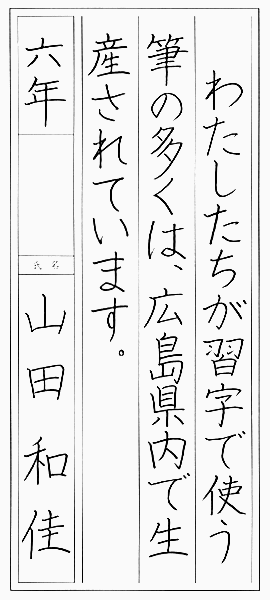 わたしたちが習字で使う
筆の多くは、広島県内で生
産されています。
六年
氏名
山田和佳